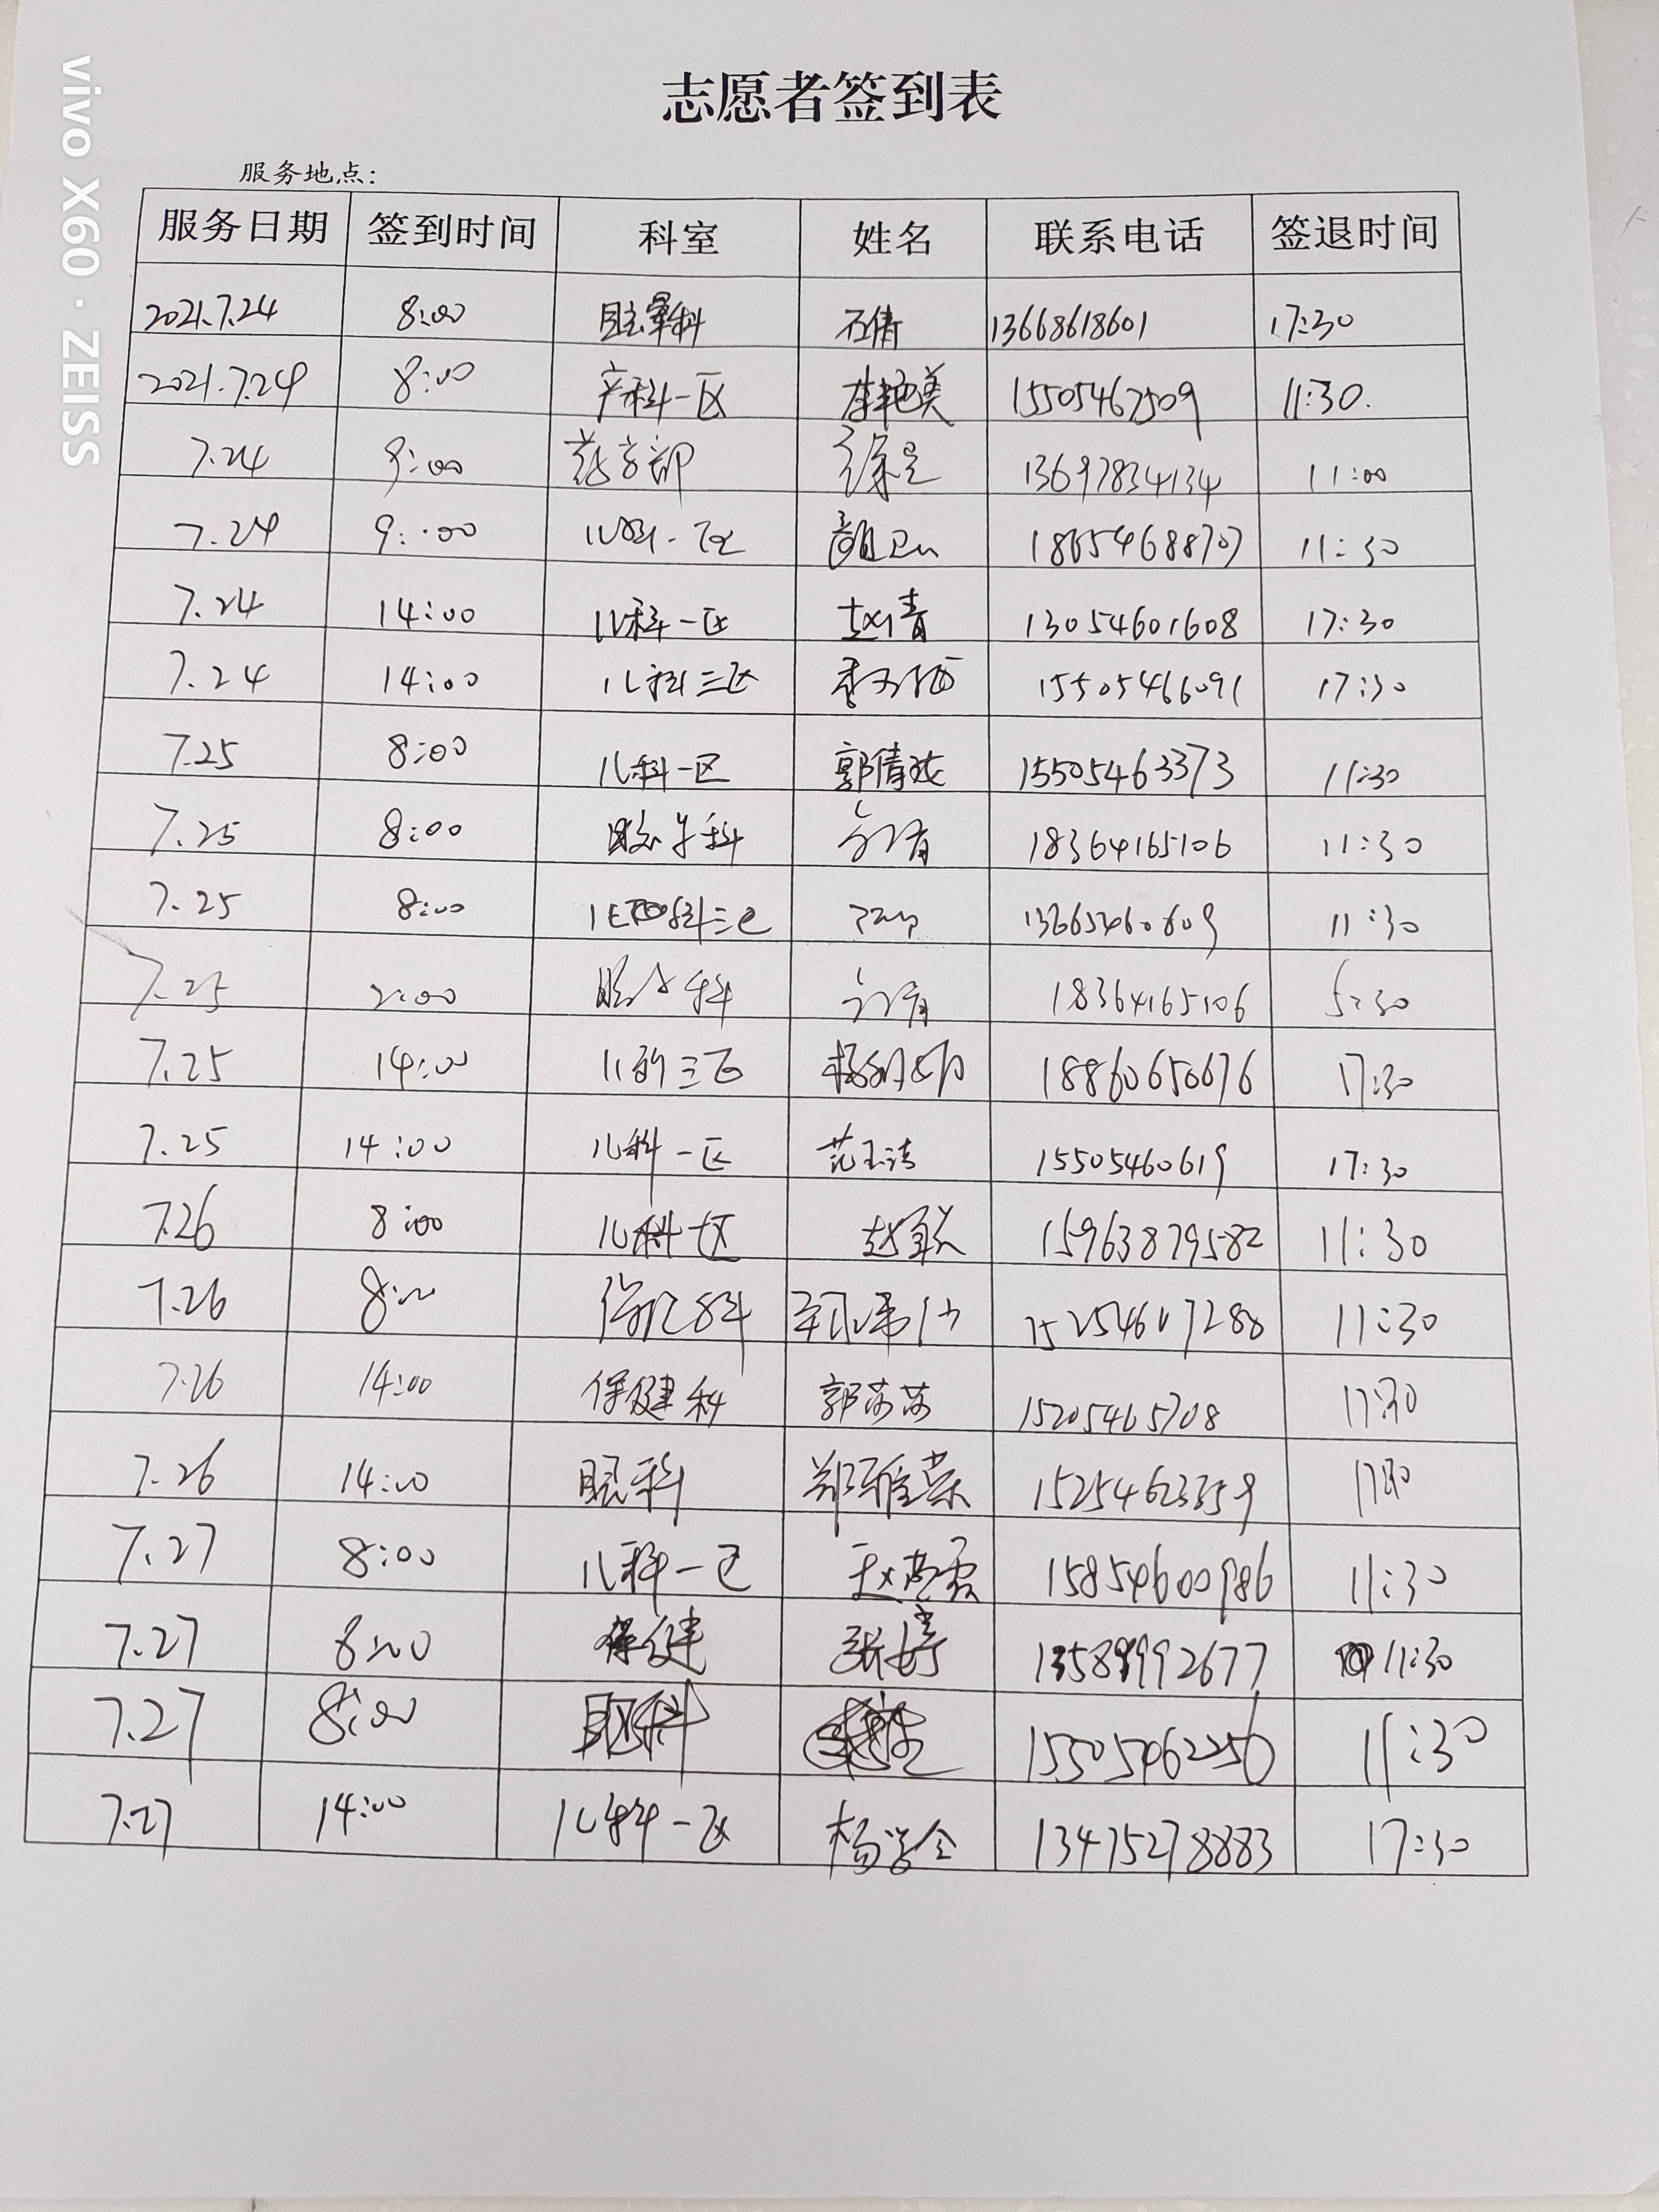 vivo X60 · ZEISS
志愿者签到表
服务地点:
服务日期 签到时间 科室 姓名 联系电话 签退时间
2021.7.24 8:00 眩晕科 石倩 13668618601 17:30
2021.7.24 8:00 产科一区 李艳美 15505467509 11:30.
7.24 9:00 药学部 13697834134 11:00
7.24 9:00 儿科一区 18654688707 11:30
7.24 14:00 儿科一区 赵青 13054601608 17:30
7.24 14:00 儿科三区 15505466091 17:30
7.25 8:00 儿科一区 郭倩 15505463373 11:30
7.25 8:00 科 18364165106 11:30
7.25 8:00 11:30
7.25 2:00 科 18364165106 5:30
7.25 14:00 儿科三区 18860650676 17:30
7.25 14:00 儿科一区 范玉洁 15505460619 17:30
7.26 8:00 儿科一区 赵 15963879582 11:30
7.26 8:00 11:30
7.26 14:00 保健科 郭莎莎 15205465708 17:30
7.26 14:00 眼科 郑雅荣 15254623359 17:30
7.27 8:00 儿科一区 赵燕霞 15854600986 11:30
7.27 8:00 保健 张婷 13589992677 11:30
7.27 8:00 眼科 15505462256 11:30
7.27 14:00 儿科一区 杨学全 13475278883 17:30